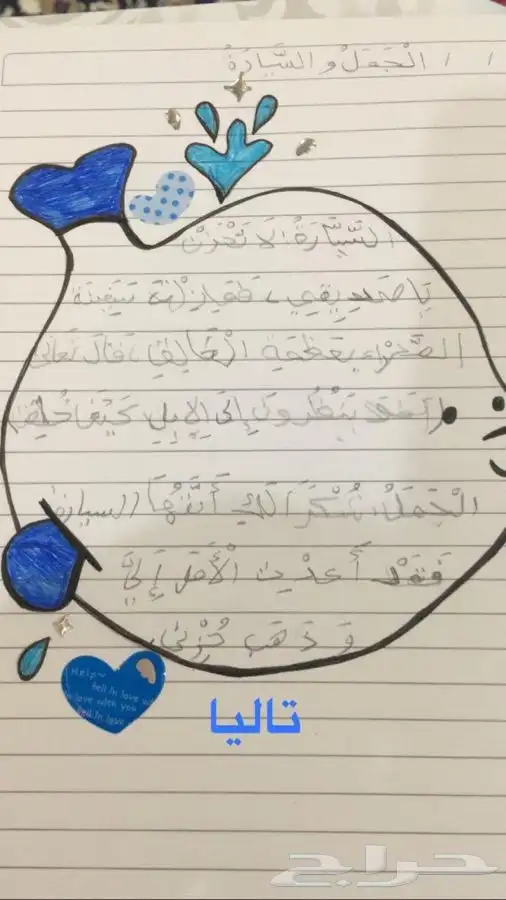 الْجَمَلُ و السَّيَّارَةُ
السَّيَّارَةُ: لَا تَحْزَنْ
يَا صَدِيقِي، سَفِينَة
الصَّحْرَاء بِعَظَمَةِ الْخَالِقِ، قَالَ تَعَالَى
(أَفَلَا يَنْظُرُونَ إِلَى الْإِبِلِ كَيْفَ خُلِقَتْ)
الْجَمَلُ: شُكْرًا لَكِ أَيَّتُهَا السيارة
فَقَدْ أَعَدْتِ الْأَمَلَ إِلَيَّ
وَ ذَهَبَ حُزْنِي.
Help~
fell in love
in love with you
fell in love
تاليا
حراج